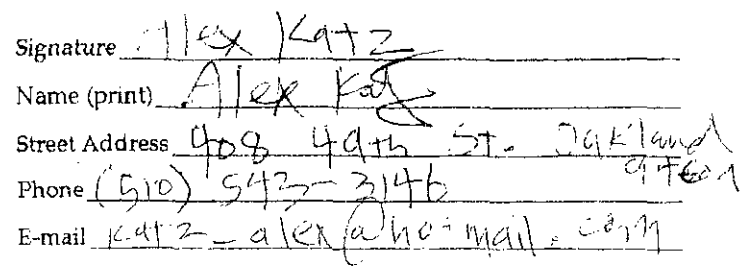 Signature Alex Katz
Name (print) Alex Katz
Street Address 408 49th St. Oakland
94609
Phone (510) 543-3146
E-mail katz_alex@hotmail.com